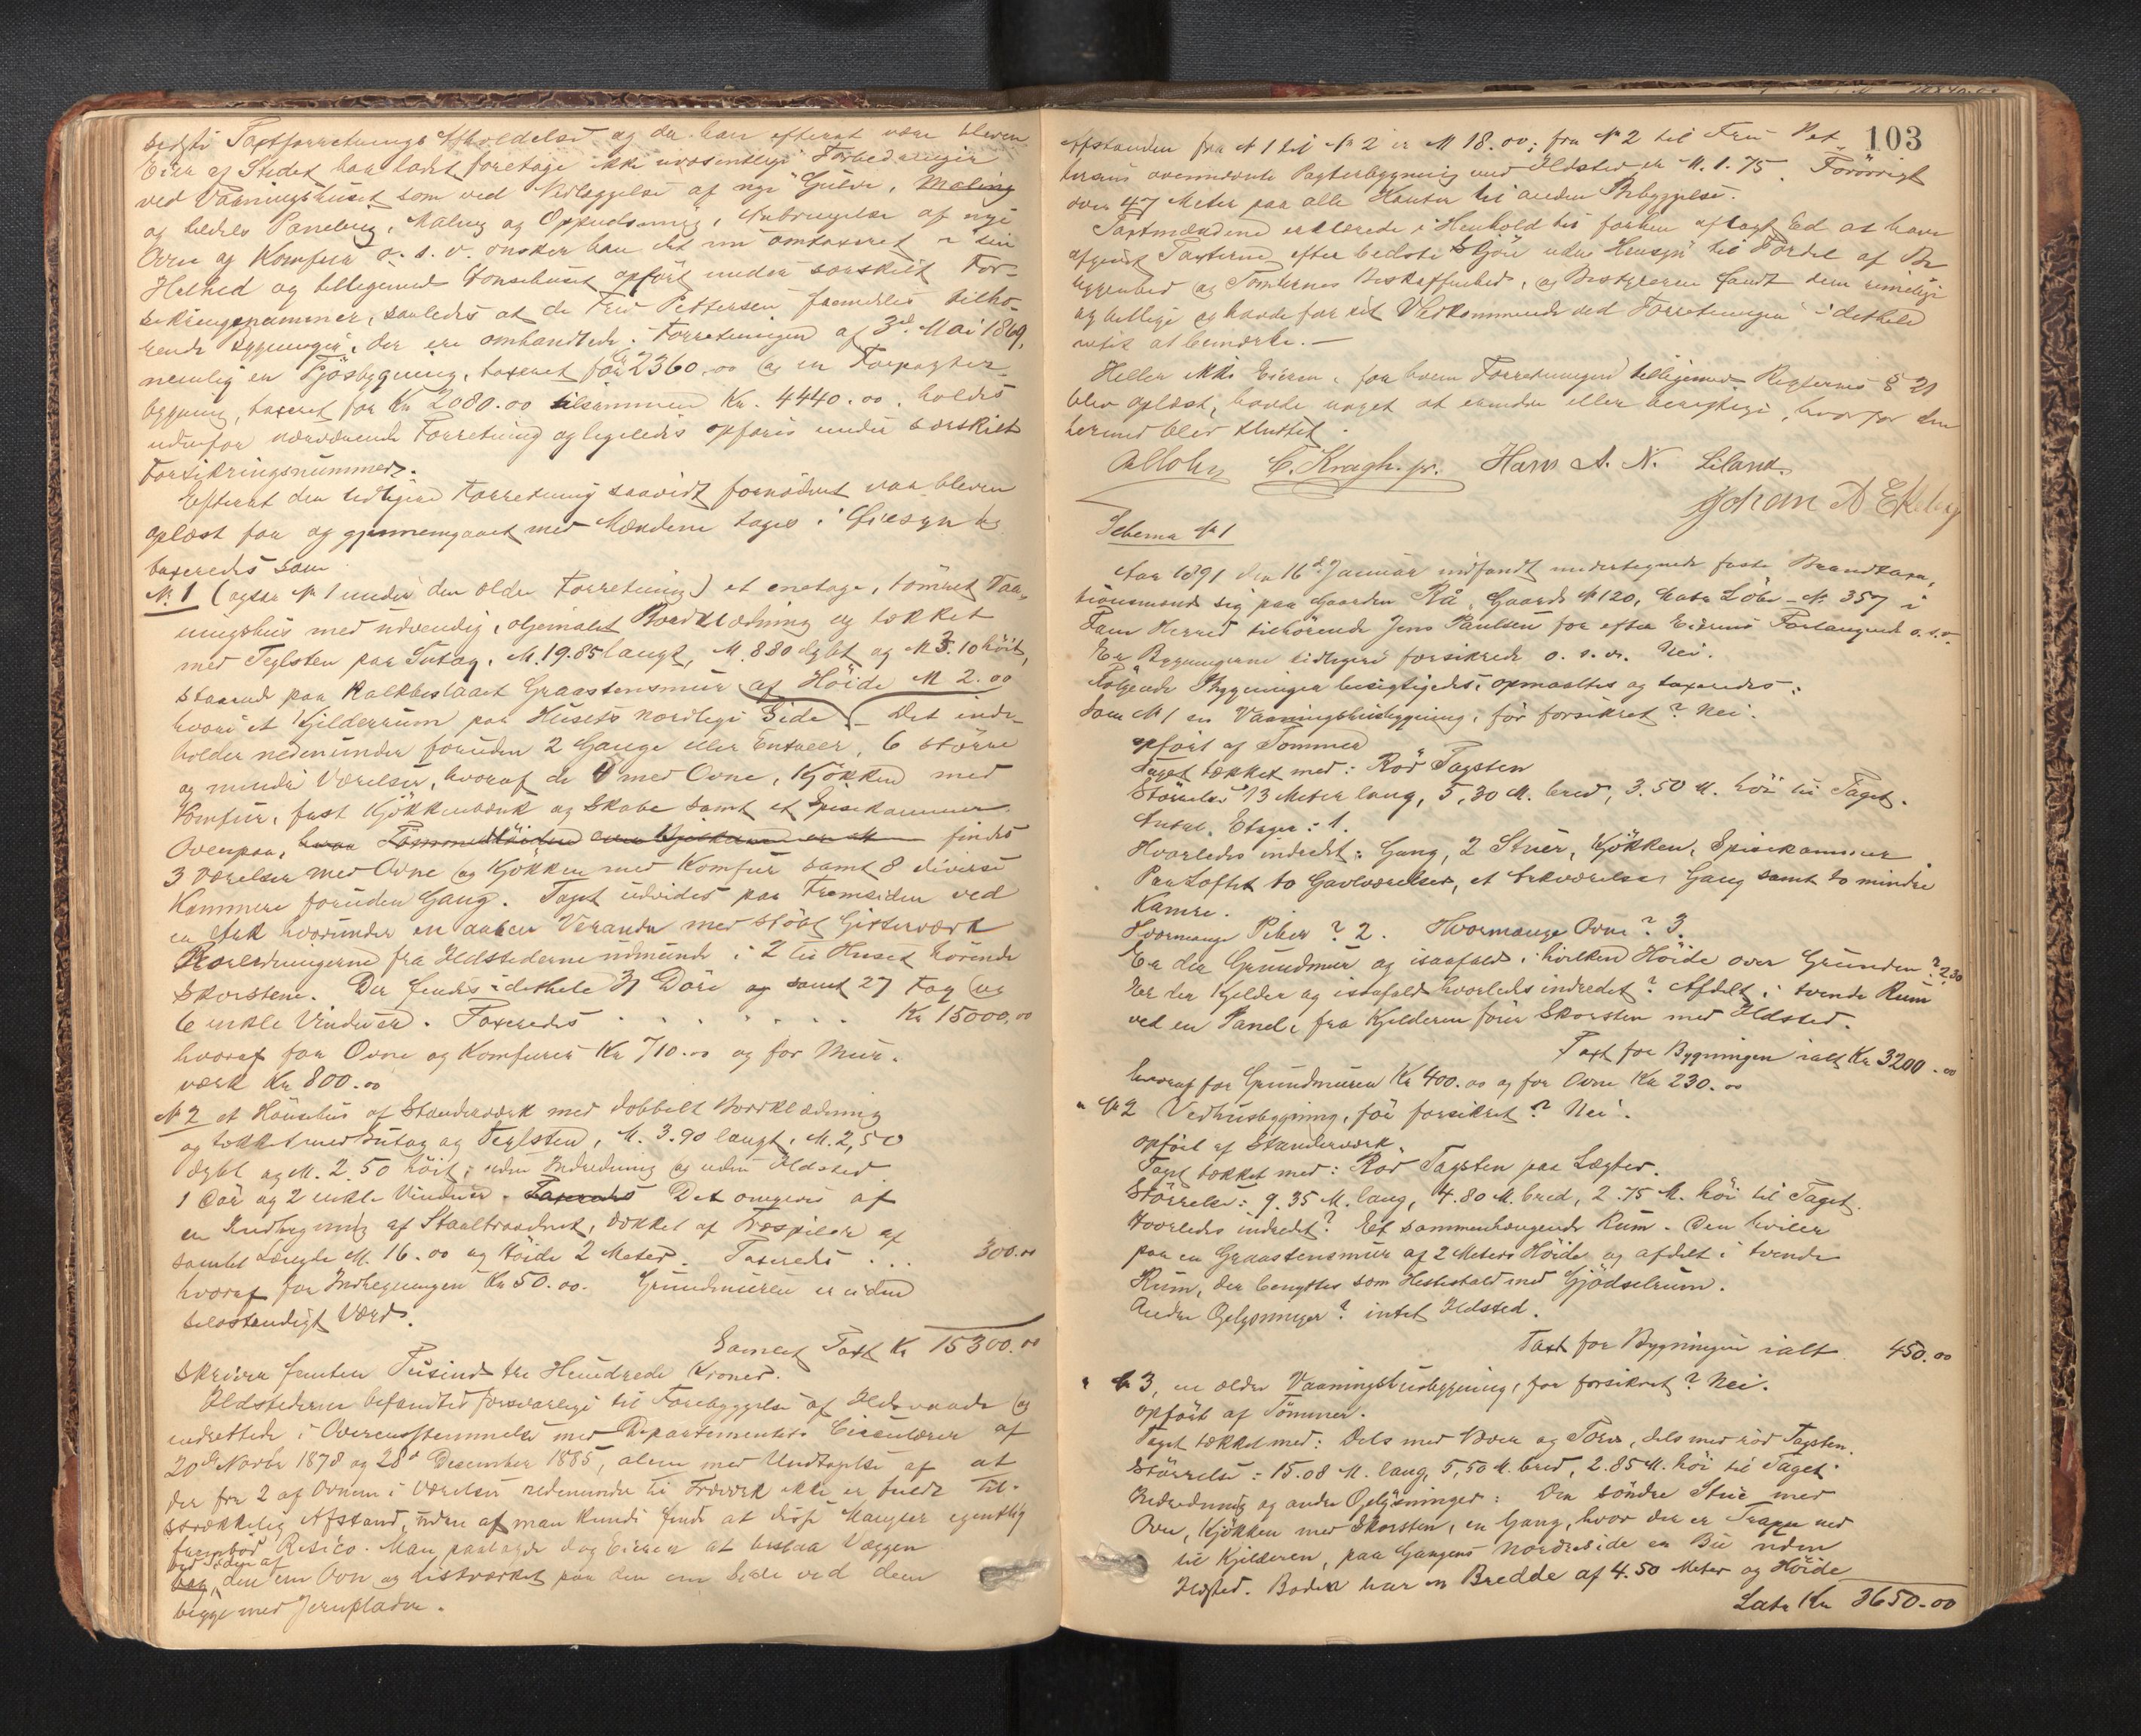 sidste Taxtforretnings Afholdelse og da han efterat være bleven
Eier af Stedet har ladet foretage ikke uvæsentlige Forbedringer
ved Vaaningshuset som ved Nedlæggelse af nye Gulve, Maling
og tildels Paneling, Maling og Oppudsning, Anbringelse af nye
Ovne og Komfur o. s. v. ønsker han det nu omtaxeret i sin
Helhed og tilligemed Hønsehuset opført under særskilt For-
sikringsnummer, saaledes at de Fru Pettersen fremdeles tilhø-
rende Bygninger, der ere omhandlede i Forretningen af 3die Mai 1869,
nemlig en Fjøsbygning, taxeret for Kr 2360.00 og en Forpagter-
bygning, taxeret for Kr 2080.00 tilsammen Kr. 4440.00, holdes
udenfor nærværende Forretning og ligeledes opføres under særskilt
Forsikringsnummer.
Efterat den tidligere Forretning saavidt fornødent var bleven
oplæst for og gjennemgaaet med Mændene toges i Øiesyn og
taxeredes som
No 1 (ogsaa No 1 under den ældre Forretning) et enetages, tømret Vaa-
ningshus med udvendig, oljemalet Bordklædning og tækket
med Teglsten paa Sutag, M. 19.85 langt, M. 8.80 dybt og M 3.10 høit,
staaende paa kalkbeslaaet Graastensmur af Høide M 2.00
hvori et Kjelderrum paa Husets nordlige Side. Det inde-
holder nedenunder foruden 2 Gange eller Entreer, 6 større
og mindre Værelser, hvoraf de 4 med Ovne, Kjøkken med
Komfur, fast Kjøkkenbænk og Skabe samt et Spisekammer
Ovenpaa, findes
3 Værelser med Ovne og Kjøkken med Komfur samt 8 diverse
Kammere foruden Gang. Taget udvides paa Fremsiden ved
en Ark hvorunder en aaben Veranda med støbt Gitterværk
Rørledningerne fra Ildstederne udmunde i 2 til Huset hørende
Skorstene. Der findes i dethele 31 Døre og samt 27 Fag og
6 enkle Vinduer. Taxeredes . . . . . . . Kr 15000.00
hvoraf for Ovne og Komfurer Kr 710.00 og for Mur-
værk Kr 800.00
No 2 et Hønsehus af Standerværk med dobbelt Bordklædning
og tækket med Sutag og Teglsten, M. 3.90 langt, M. 2,50
dybt og M. 2.50 høit, uden Indredning og uden Ildsted
1 Dør og 2 enkle Vinduer. Taxeredes Det omgives af
en Indhegning af Staaltraadnet, dækket af Træspiler af
samlet Længde M. 16.00 og Høide 2 Meter. Taxeredes . . . 300.00
hvoraf for Indhegningen Kr 50.00. Grundmuren er uden
selvstændigt Værd.
Samlet Taxt Kr 15300.00
skriver femten Tusinde tre Hundrede Kroner.
Ildstederne befandtes forsvarlige til Forebyggelse af Ildsvaade og
indrettede i Overensstemmelse med Departementets Circulærer af
20de Novbr 1878 og 28de December 1885, alene med Undtagelse af at
der fra 2 af Ovnene i Værelser nedenunder til Træværk ikke er fuldt til-
strækkelig Afstand, uden at man kunde finde at disse Mangler egentlig
frembød Risico. Man paalagde dog Eieren at beslaa Væggen
ved Siden af
bag den ene Ovn og Listværket paa den ene Side ved dem
begge med Jernplader.
103
Afstanden fra No 1 til No 2 er M 18.00; fra No 2 til Fru Pet
tersens ovennævnte Pagterbygning med Ildsted er M. 1.75. Forøvrigt
over 47 Meter paa alle Kanter til anden Bebyggelse.
Taxtmændene erklærede i Henhold til forhen aflagt Ed at have
afgivet Taxterne efter bedste Skjøn uden Hensyn til Fordel af Be
liggenhed og Tomternes Beskaffenhed, og Bestyreren fandt dem rimelige
og billige og havde for sit Vedkommende ved Forretningen i dethele
intet at bemærke.—
Heller ikke Eieren, for hvem Forretningen tilligemed Reglernes § 21
blev oplæst, havde noget at erindre eller berigtige, hvorfor den
hermed blev sluttet.
C. Kragh. jr. Hans A. N. Liland.
Johan A Ekeley
Schema No 1
Aar 1891 den 16de Januar indfandt undertegnede faste Brandtaxa-
tionsmænd sig paa Gaarden Rå, Gaards No 120, Matr Løbe-No 357 i
Fane Herred tilhørende Jens Paulsen for efter Eierens Forlangende o.s.v.
Er Bygningerne tidligere forsikrede o. s. v. Nei.
Følgende Bygninger besigtigedes, opmaaltes og taxeredes:
Som No 1 en Vaaningshusbygning, før forsikret? Nei.
opført af Tømmer
Taget tækket med: Rød Tagsten
Størrelse 13 Meter lang, 5,30 M. bred, 3.50 M. høi til Taget.
Antal Etager: 1.
Hvorledes indredet: Gang, 2 Stuer, Kjøkken, Spisekammer.
Paa Loftet to Gavlværelser, et Arkværelse, Gang samt to mindre
Kamre.
Hvormange Piber? 2. Hvormange Ovne? 3.
Er der Grundmur og isaafald i hvilken Høide over Grunden? 2.30
Er der Kjelder og isaafald hvorledes indredet? Afdelt i tvende Rum
ved en Panel, fra Kjelderen fører Skorsten med Ildsted.
Taxt for Bygningen ialt Kr 3200.00
hvoraf for Grundmuren Kr 400.00 og for Ovne Kr 230.00
" No 2 Vedhusbygning, før forsikret? Nei.
opført af Standerværk.
Taget tækket med: Rød Tagsten paa Lægter.
Størrelse: 9.35 M. lang, 4.80 M. bred, 2.75 M. høi til Taget.
Hvorledes indredet? Et sammenhængende Rum. Den hviler
paa en Graastensmur af 2 Meters Høide og afdelt i tvende
Rum, der benyttes som Hestestald med Gjødselrum.
Andre Oplysninger? intet Ildsted.
Taxt for Bygningen ialt 450.00
" No 3, en ældre Vaaningshusbygning, før forsikret? Nei.
opført af Tømmer.
Taget tækket med: Dels med Never og Torv, dels med rød Tagsten.
Størrelse: 15.08 M. lang, 5,50 M. bred, 2.85 M. høi til Taget.
Indredning og andre Oplysninger: Den søndre Stue med
Ovn, Kjøkken med Skorsten, en Gang, hvor der er Trappe ned
til Kjelderen, paa Gangens Nordreside en Bu uden
Ildsted. Boden har en Bredde af 4.50 Meter og Høide
Lats Kr 3650.00